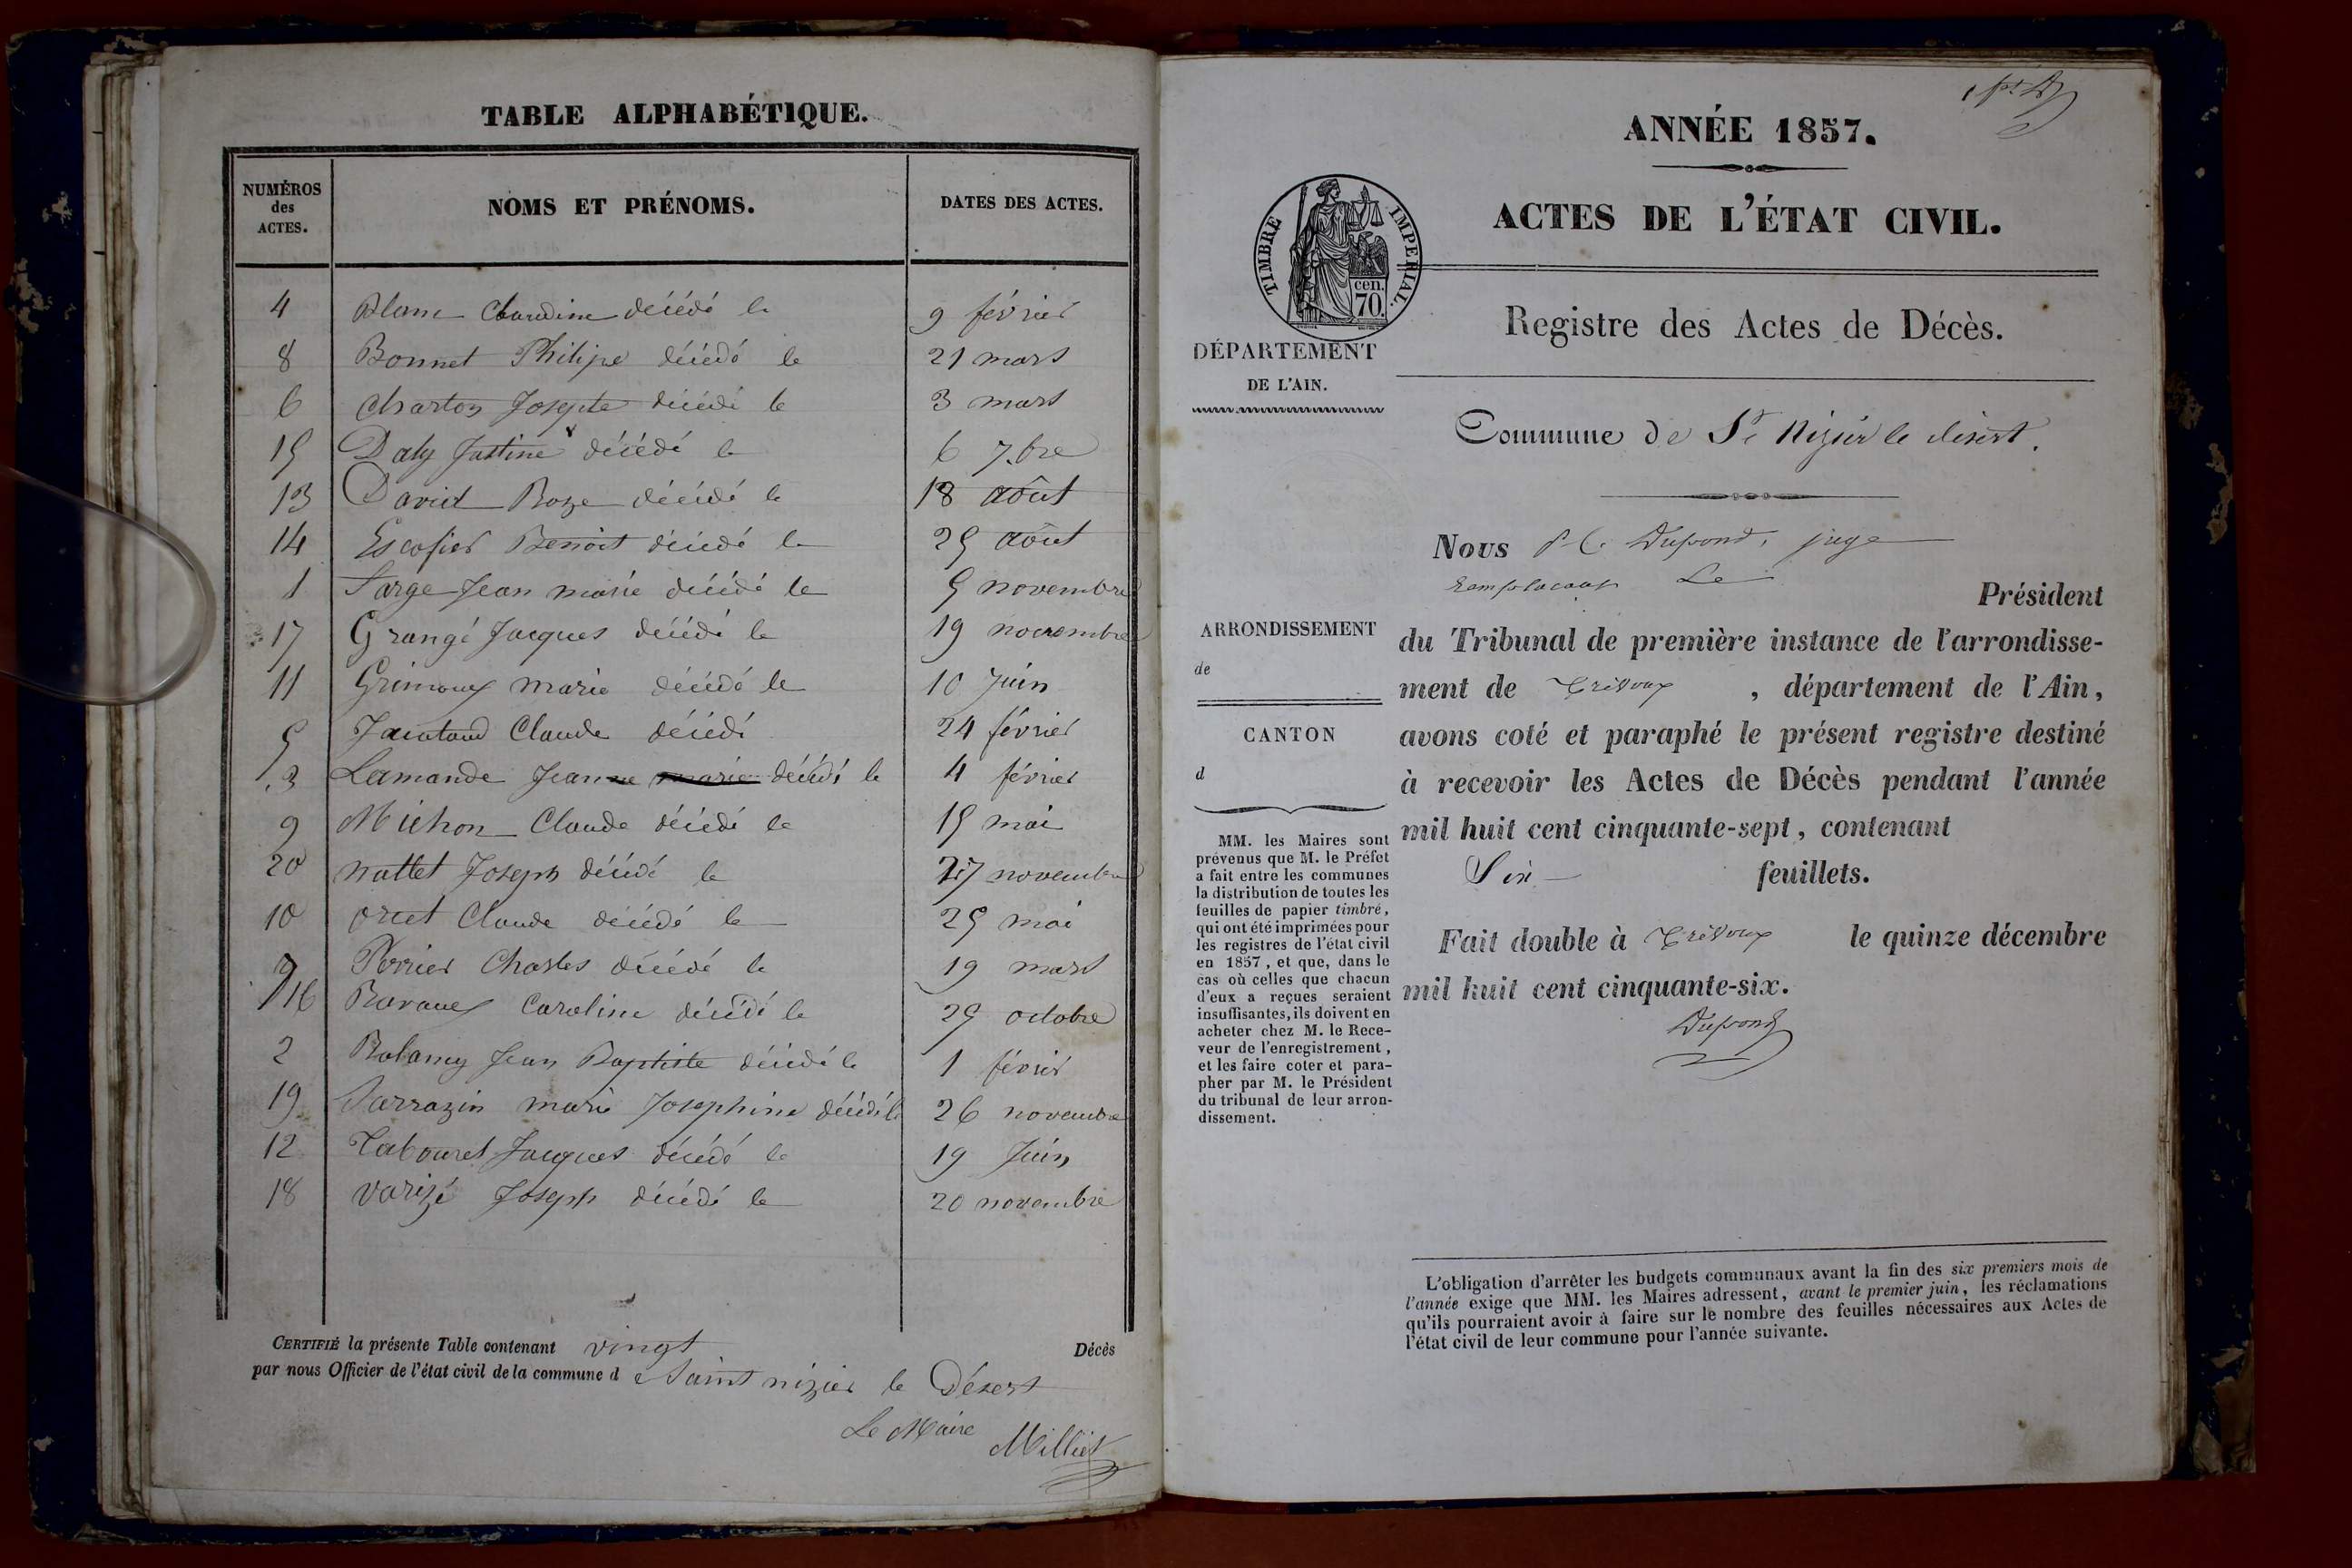 TABLE ALPHABÉTIQUE.
NUMÉROS des ACTES. NOMS ET PRÉNOMS. DATES DES ACTES.
4 Blanc Claudine décédé le 9 février
8 Bonnet Philipe décédé le 21 mars
6 Charton Josepte décédé le 3 mars
15 Daly Justine décédé le 6 7.bre
13 David Roze décédé le 18 août
14 Escofier Benoit décédé le 25 août
1 Farge Jean marie décédé le 5 novembre
17 Grangé Jacques décédé le 19 novembre
11 Grimoux marie décédé le 10 Juin
5 Claude décédé 24 février
3 Lamande Jeanne marie décédé le 4 février
9 Michon Claude décédé le 15 mai
20 nallet Joseph décédé le 27 novembre
10 oriet Claude décédé le 25 mai
7 Perrier Charles décédé le 19 mars
16 Ravaux Caroline décédé le 25 octobre
2 Rolamy Jean Baptiste décédé le 1 février
19 Sarrazin marie Josephine décédé le 26 novembre
12 Tabouret Jacques décédé le 19 Juin
18 varizé Joseph décédé le 20 novembre
CERTIFIÉ la présente Table contenant vingt Décès
par nous Officier de l'état civil de la commune d e Saint nizier le Désert
Le Maire Milliet
ANNÉE 1857.
ACTES DE L'ÉTAT CIVIL.
TIMBRE IMPERIAL.
cen.
70.
Registre des Actes de Décès.
DÉPARTEMENT
DE L'AIN.
Commune de St Nizier le désert.
Nous Dupond, juge
remplacant Le
Président
du Tribunal de première instance de l'arrondisse-
ment de Trévoux , département de l'Ain,
avons coté et paraphé le présent registre destiné
à recevoir les Actes de Décès pendant l'année
mil huit cent cinquante-sept, contenant
Six feuillets.
Fait double à Trévoux le quinze décembre
mil huit cent cinquante-six.
Dupond
ARRONDISSEMENT
de
CANTON
d
MM. les Maires sont
prévenus que M. le Préfet
a fait entre les communes
la distribution de toutes les
feuilles de papier timbré,
qui ont été imprimées pour
les registres de l'état civil
en 1857, et que, dans le
cas où celles que chacun
d'eux a reçues seraient
insuffisantes, ils doivent en
acheter chez M. le Rece-
veur de l'enregistrement,
et les faire coter et para-
pher par M. le Président
du tribunal de leur arron-
dissement.
L'obligation d'arrêter les budgets communaux avant la fin des six premiers mois de
l'année exige que MM. les Maires adressent, avant le premier juin, les réclamations
qu'ils pourraient avoir à faire sur le nombre des feuilles nécessaires aux Actes de
l'état civil de leur commune pour l'année suivante.